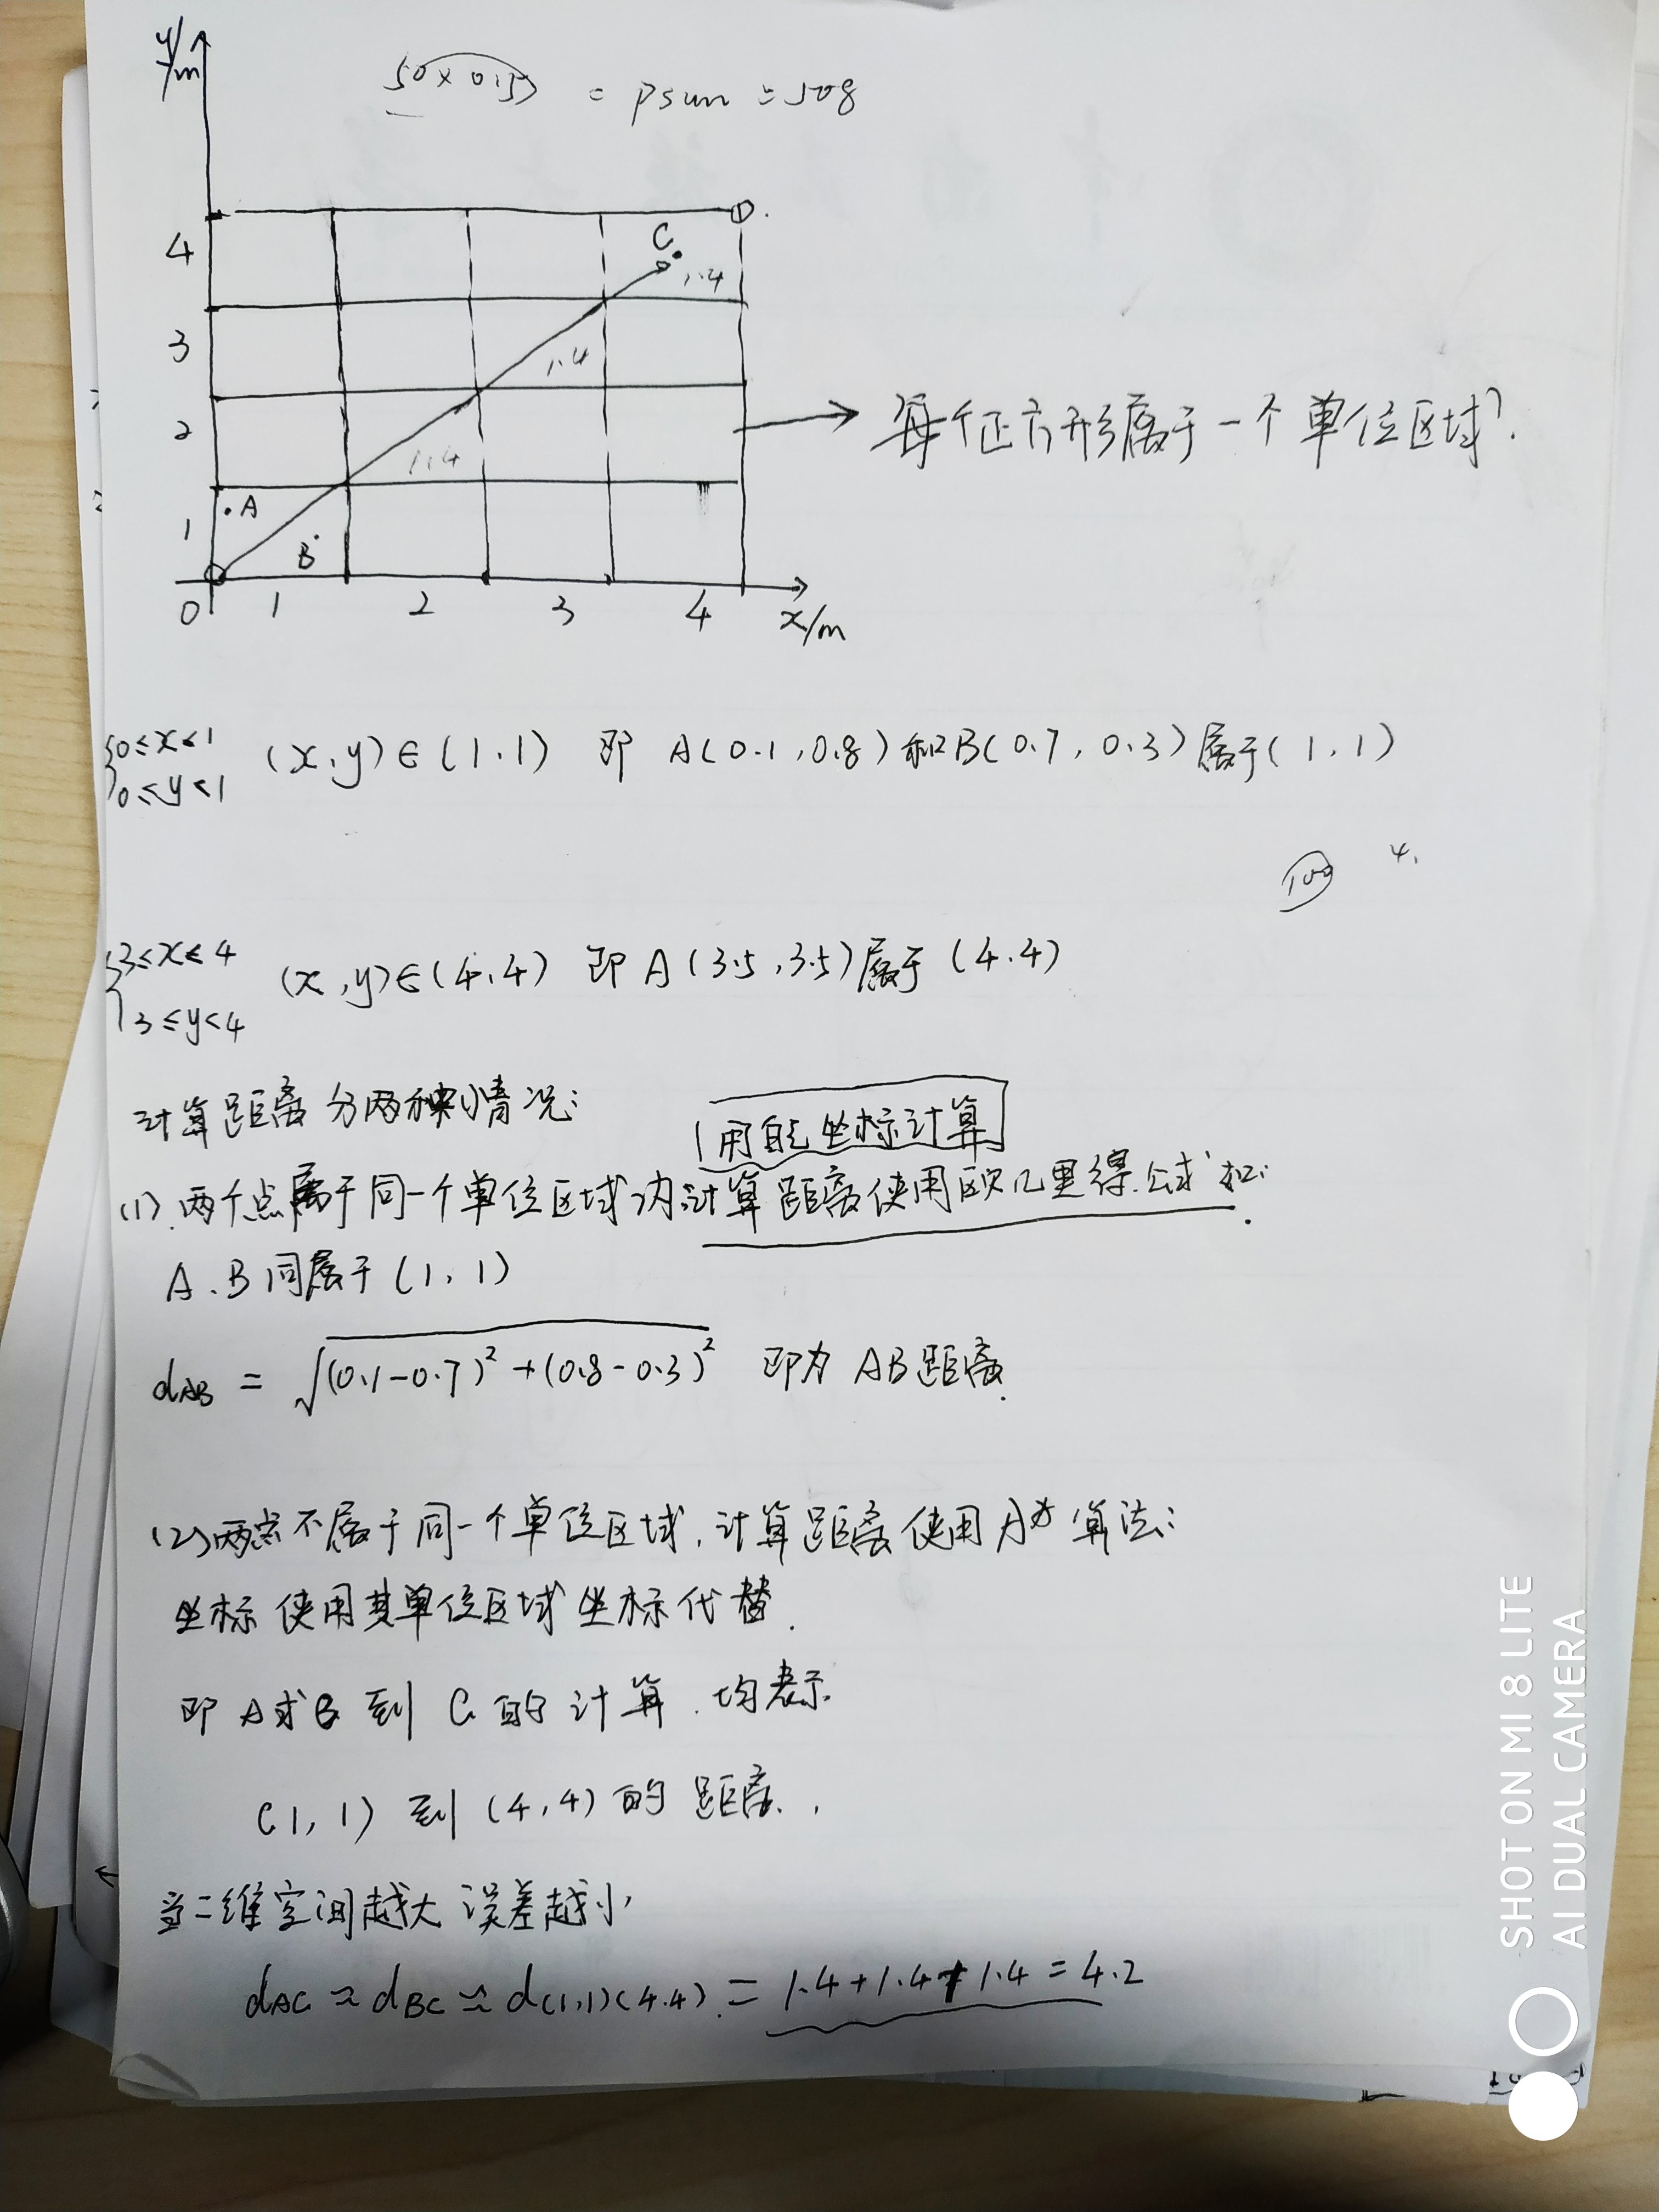 y/m
= psum = 508
4
C
1.4
3
1.4
2
1.4
每个正方形属于一个单位区域.
A
1
B
0 1 2 3 4 x/m
0≤x<1
0≤y<1
(x,y)∈(1.1) 即 A(0.1,0.8)和B(0.7,0.3)属于(1,1)
100 4.
3≤x≤4
3≤y<4
(x,y)∈(4,4) 即 A(3.5,3.5)属于(4.4)
计算距离分两种情况:
用自己坐标计算
(1).两个点属于同一个单位区域内:计算距离使用欧几里得公式 如:
A.B同属于(1,1)
dAB = √(0.1-0.7)²+(0.8-0.3)² 即为AB距离.
(2)两点不属于同一个单位区域,计算距离使用A*算法:
坐标使用其单位区域坐标代替.
即A或B到C的计算.均表示
(1,1)到(4,4)的距离.
当二维空间越大误差越小
dAC ≈ dBC ≈ d(1,1)(4.4) = 1.4+1.4+1.4=4.2
SHOT ON MI 8 LITE
AI DUAL CAMERA